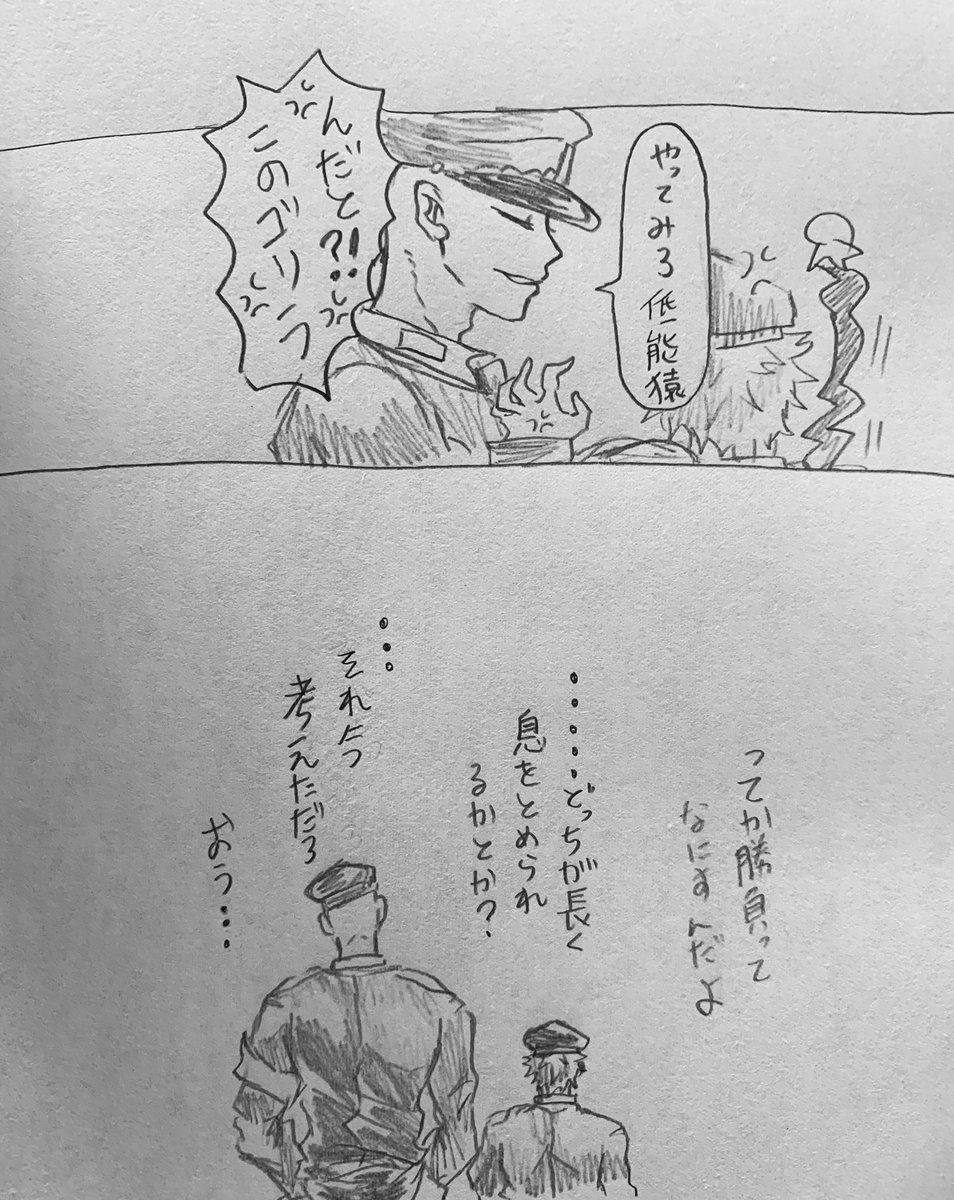 やってみろ低能猿
んだと?!
このゴリラ
ってか勝負って
なにすんだよ
・・・・・どっちが長く
息をとめられ
るかとか?
・・・
それ今
考えただろ
おう・・・